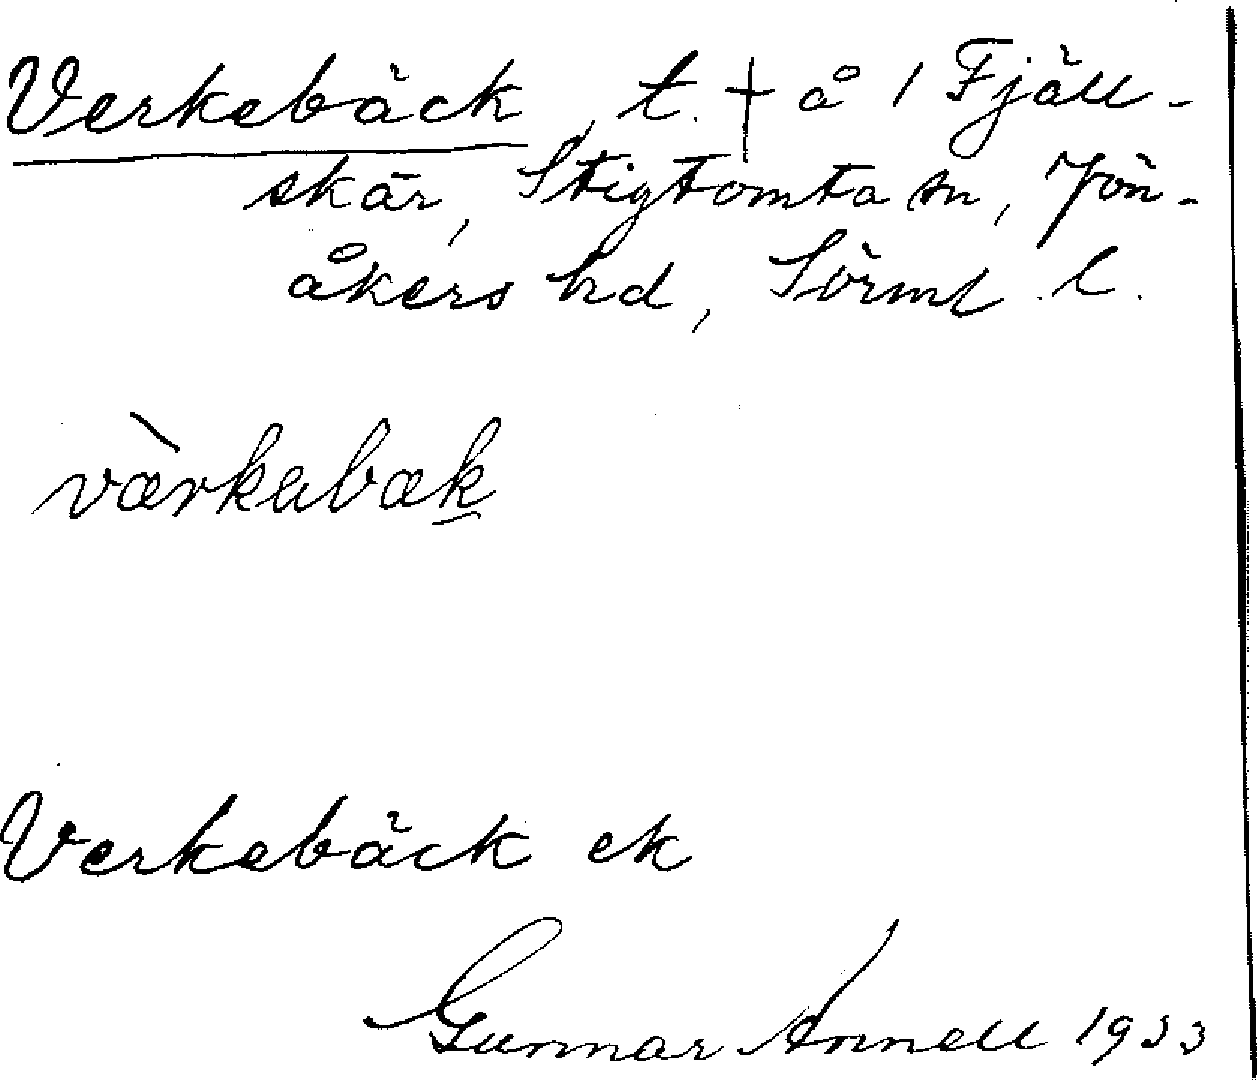 Verkebäck, t. † å 1 Fjäll-
skär, Stigtomta sn, Jön-
åkers hd, Sörml. l.
vàrkabæk
Verkebäck ek
Gunnar Annell 1933